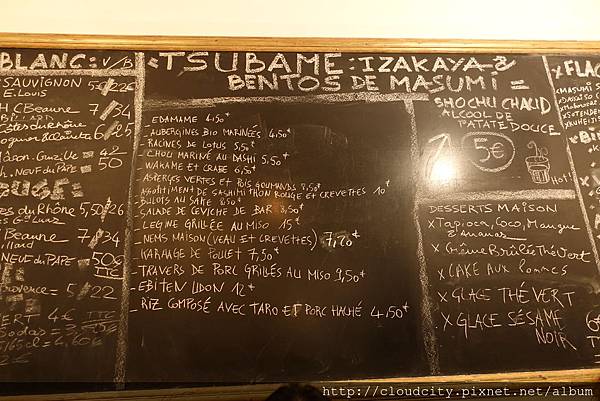 BLANC: V/B
SAUVIGNON 5,50/22€
E. LOUIS
H.C BEAUNE 7/34
BILLARD
CÔTES DU RHÔNE 6/25
42
CH. NEUF DU PAPE 50
DU RHÔNE 5,50/26
BEAUNE 7/34
BILLARD
NEUF DU PAPE 50€
TTC
PROVENCE = 5/22
VERT 4€ TTC
TSUBAME: IZAKAYA &
BENTOS DE MASUMI =
- EDAMAME 4,50€
- AUBERGINES BIO MARINÉES 4,50€
- RACINES DE LOTUS 5,50€
- CHOU MARINÉ AU DASHI 5,50€
- WAKAME ET CRABE 6,50€
- ASPERGES VERTES ET POIS GOURMANDS 8,50€
- ASSORTIMENT DE SASHIMI THON ROUGE ET CREVETTES 10€
- BULOTS AU SAKE 8,50€
- SALADE DE CEVICHE DE BAR 8,50€
- LEGINE GRILLÉE AU MISO 15€
- NEMS MAISON (VEAU ET CREVETTES) 7,20€
- KARAAGE DE POULET 7,50€
- TRAVERS DE PORC GRILLÉS AU MISO 9,50€
- EBITEN UDON 12€
- RIZ COMPOSÉ AVEC TARO ET PORC HACHÉ 4,50€
SHOCHU CHAUD
ALCOOL DE
PATATE DOUCE
5€
HOT!
DESSERTS MAISON
X TAPIOCA, COCO, MANGUE
& ANANAS
X CRÈME BRÛLÉE THÉ VERT
X CAKE AUX POMMES
X GLACE THÉ VERT
X GLACE SÉSAME
NOIR
X FLAC
http://cloudcity.pixnet.net/album